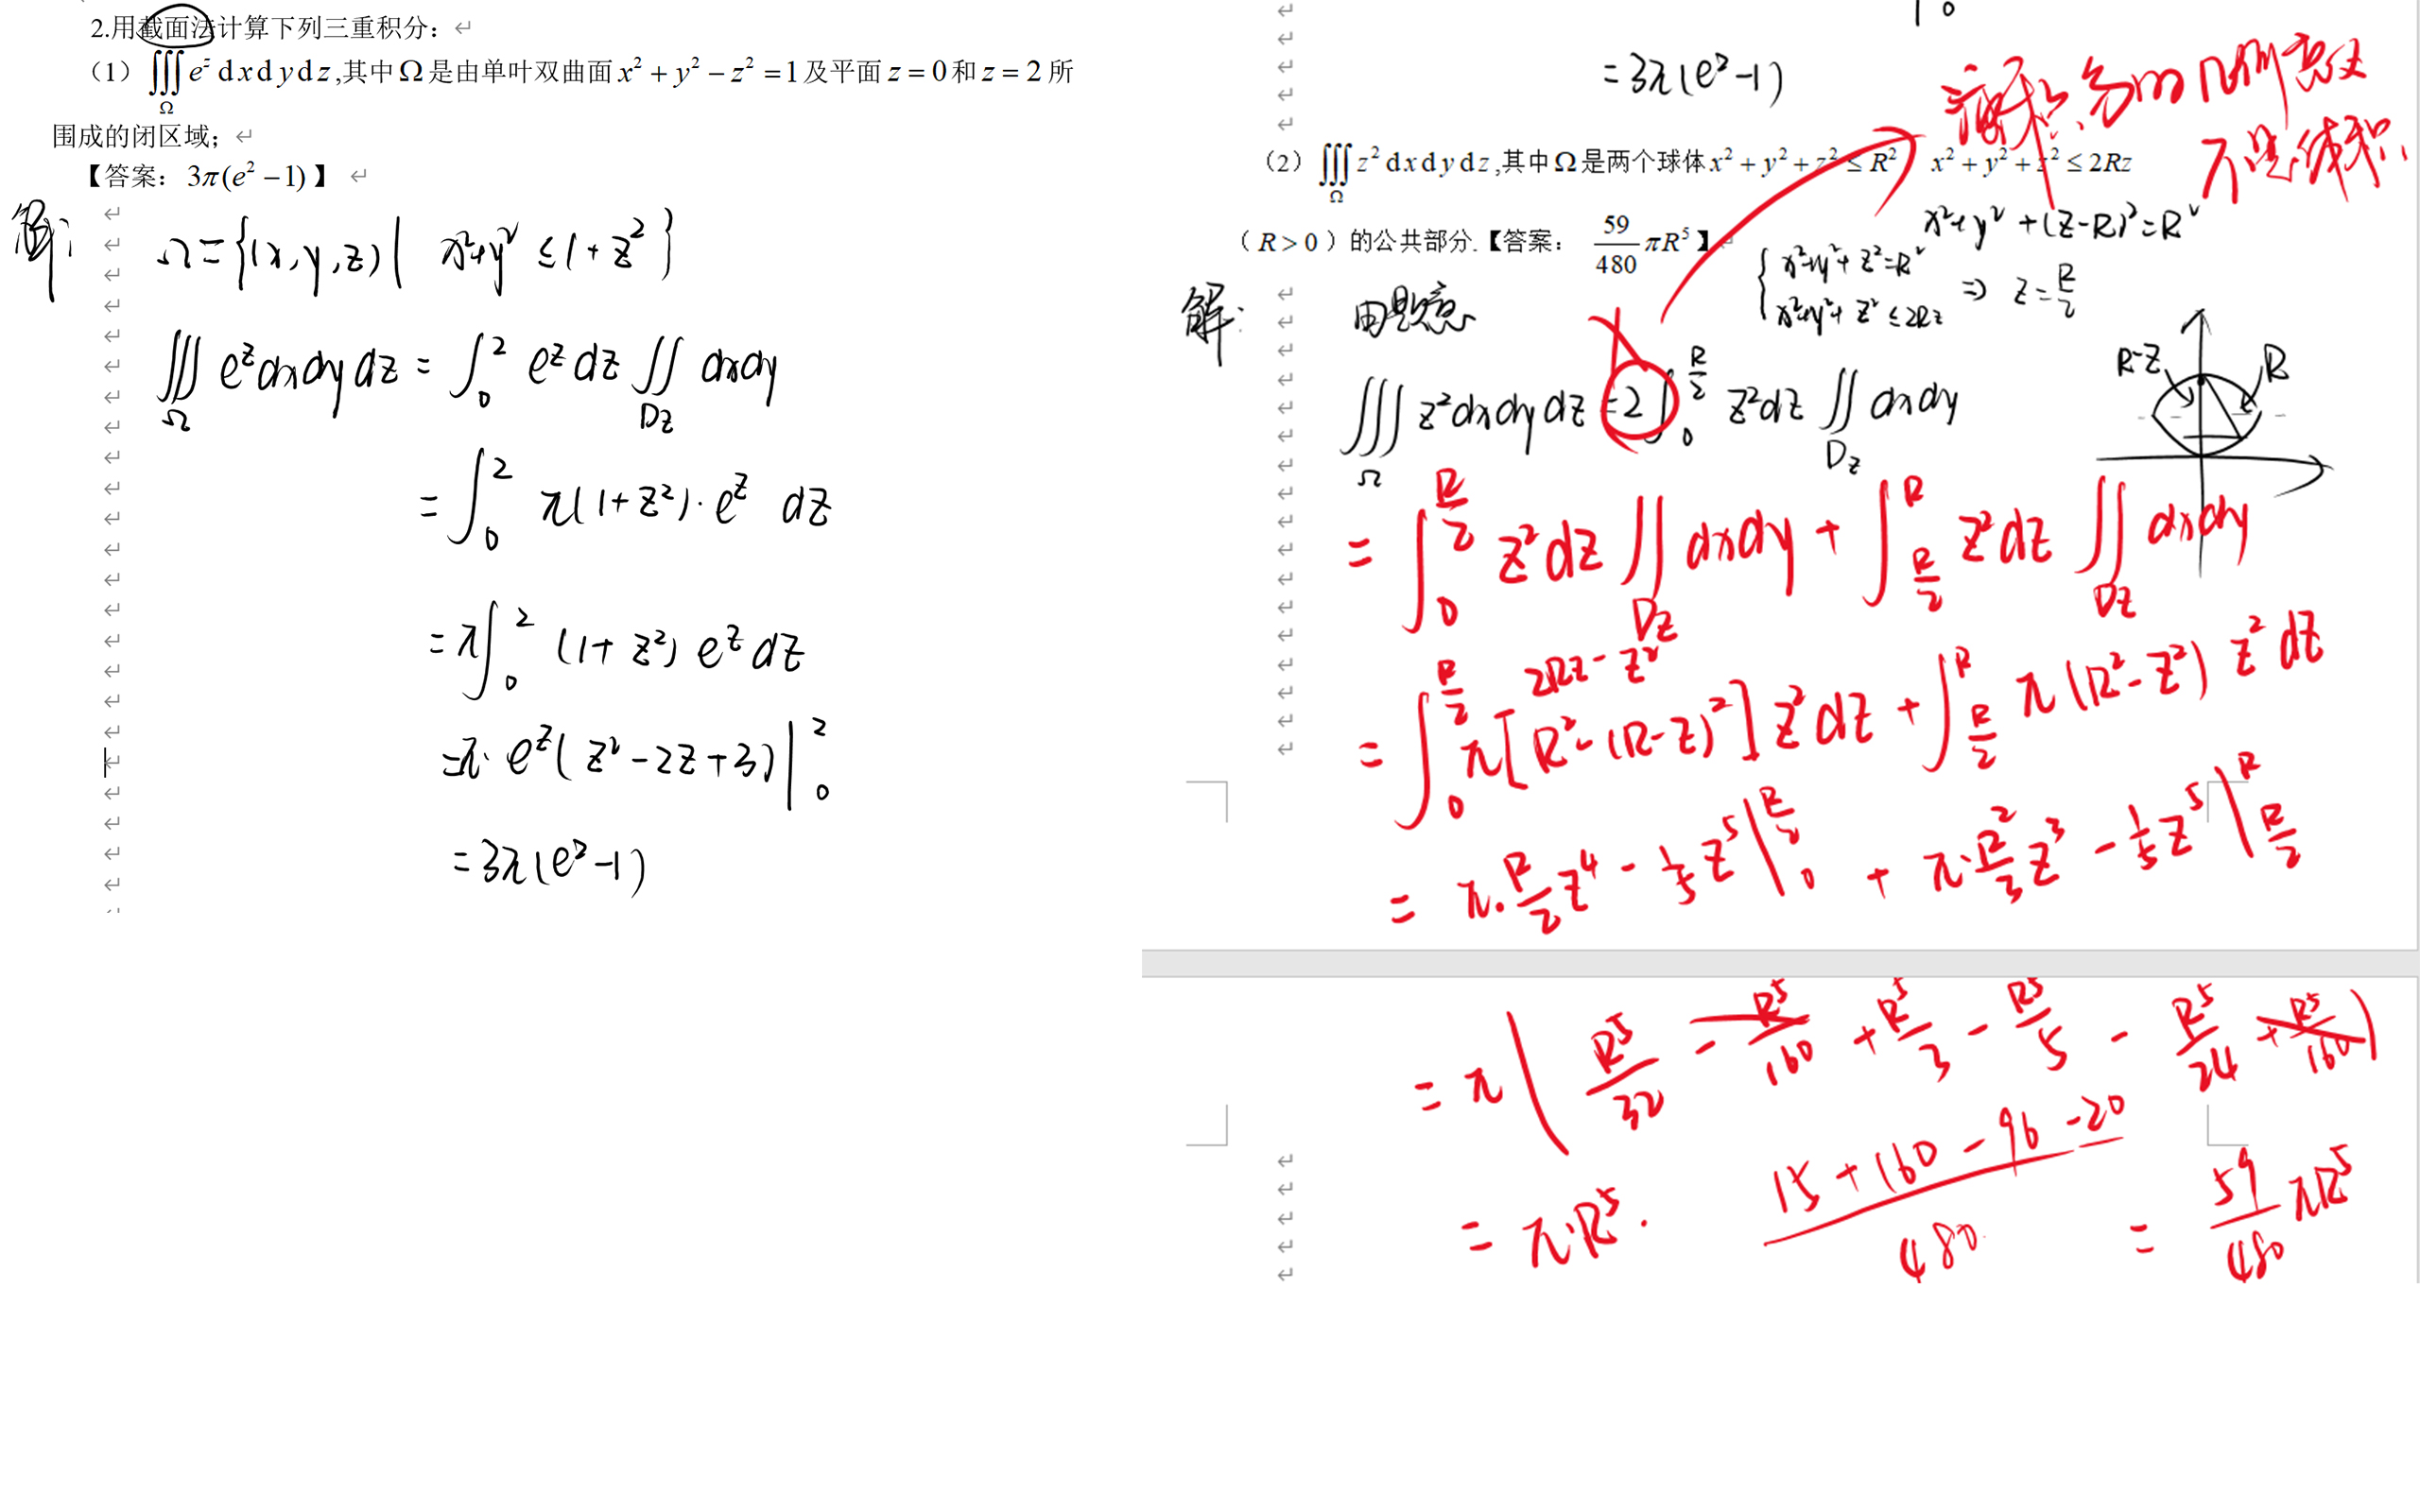 2.用截面法计算下列三重积分：
（1）∭_Ω e^z dxdydz,其中Ω是由单叶双曲面x²+y²−z²=1及平面z=0和z=2所
围成的闭区域；
【答案：3π(e²−1)】
解：
Ω={(x,y,z)| x²+y²≤1+z²}
∭_Ω e^z dxdydz = ∫_0^2 e^z dz ∬_{Dz} dxdy
= ∫_0^2 π(1+z²)·e^z dz
=π∫_0^2 (1+z²) e^z dz
=π·e^z(z²−2z+3)|_0^2
=3π(e²−1)
0
=3π(e²−1)
三重积分的几何意义
不是体积
（2）∭_Ω z² dxdydz,其中Ω是两个球体x²+y²+z²≤R² x²+y²+z²≤2Rz
（R>0）的公共部分.【答案： 59/480 πR⁵】
x²+y²+(z−R)²=R²
{x²+y²+z²=R²
x²+y²+z²≤2Rz ⇒ z=R/2
解：由题意
R-z
R
∭_Ω z²dxdydz =2∫_0^{R/2} z²dz ∬_{Dz} dxdy
= ∫_0^{R/2} z²dz ∬_{Dz} dxdy + ∫_{R/2}^R z²dz ∬_{Dz} dxdy
2Rz−z²
= ∫_0^{R/2} π[R²−(R−z)²] z²dz + ∫_{R/2}^R π(R²−z²) z²dz
= π·R/2 z⁴ − 1/5 z⁵|_0^{R/2} + π·R²/3 z³ − 1/5 z⁵|_{R/2}^R
= π(R⁵/32 − R⁵/160 + R⁵/3 − R⁵/5 − R⁵/24 + R⁵/160)
= π·R⁵· (15+160−96−20)/480 = 59/480 πR⁵